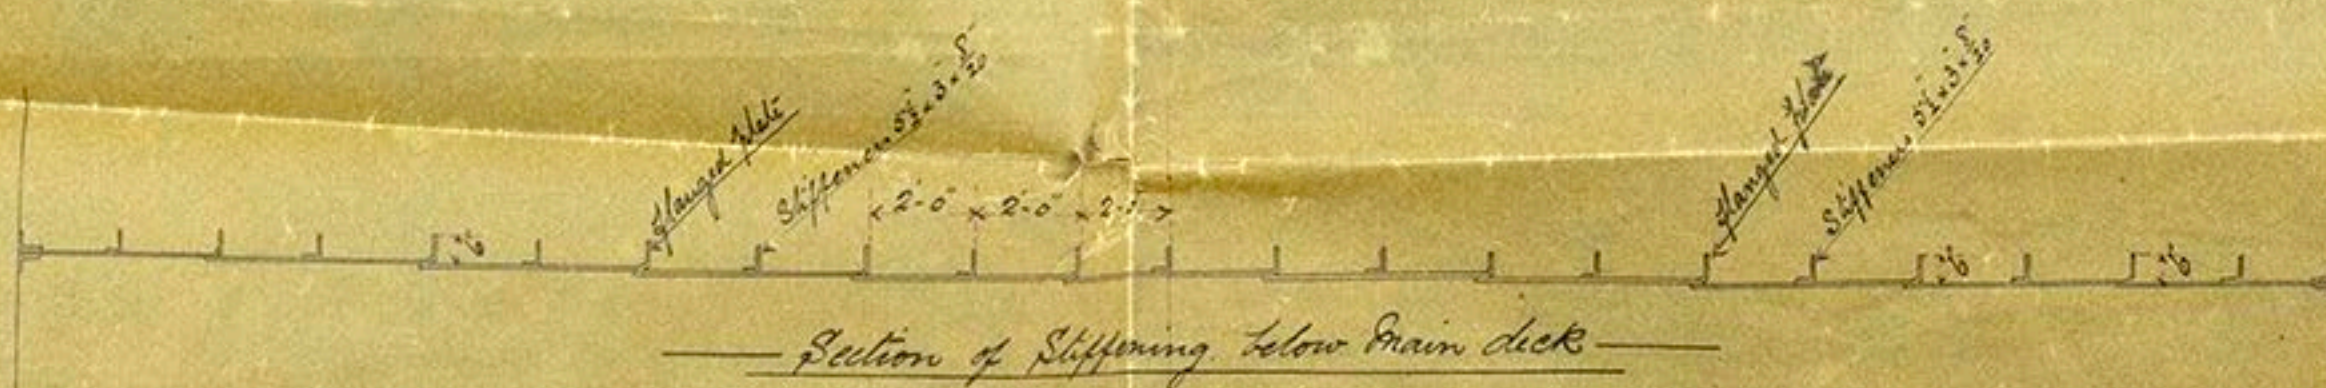 Flanged plate
Stiffeners 5½ × 3 × 8/20
2'-0" 2'-0" 2'-0"
Flanged plate
Stiffeners 5½ × 3 × 8/20
Section of Stiffening below Main deck